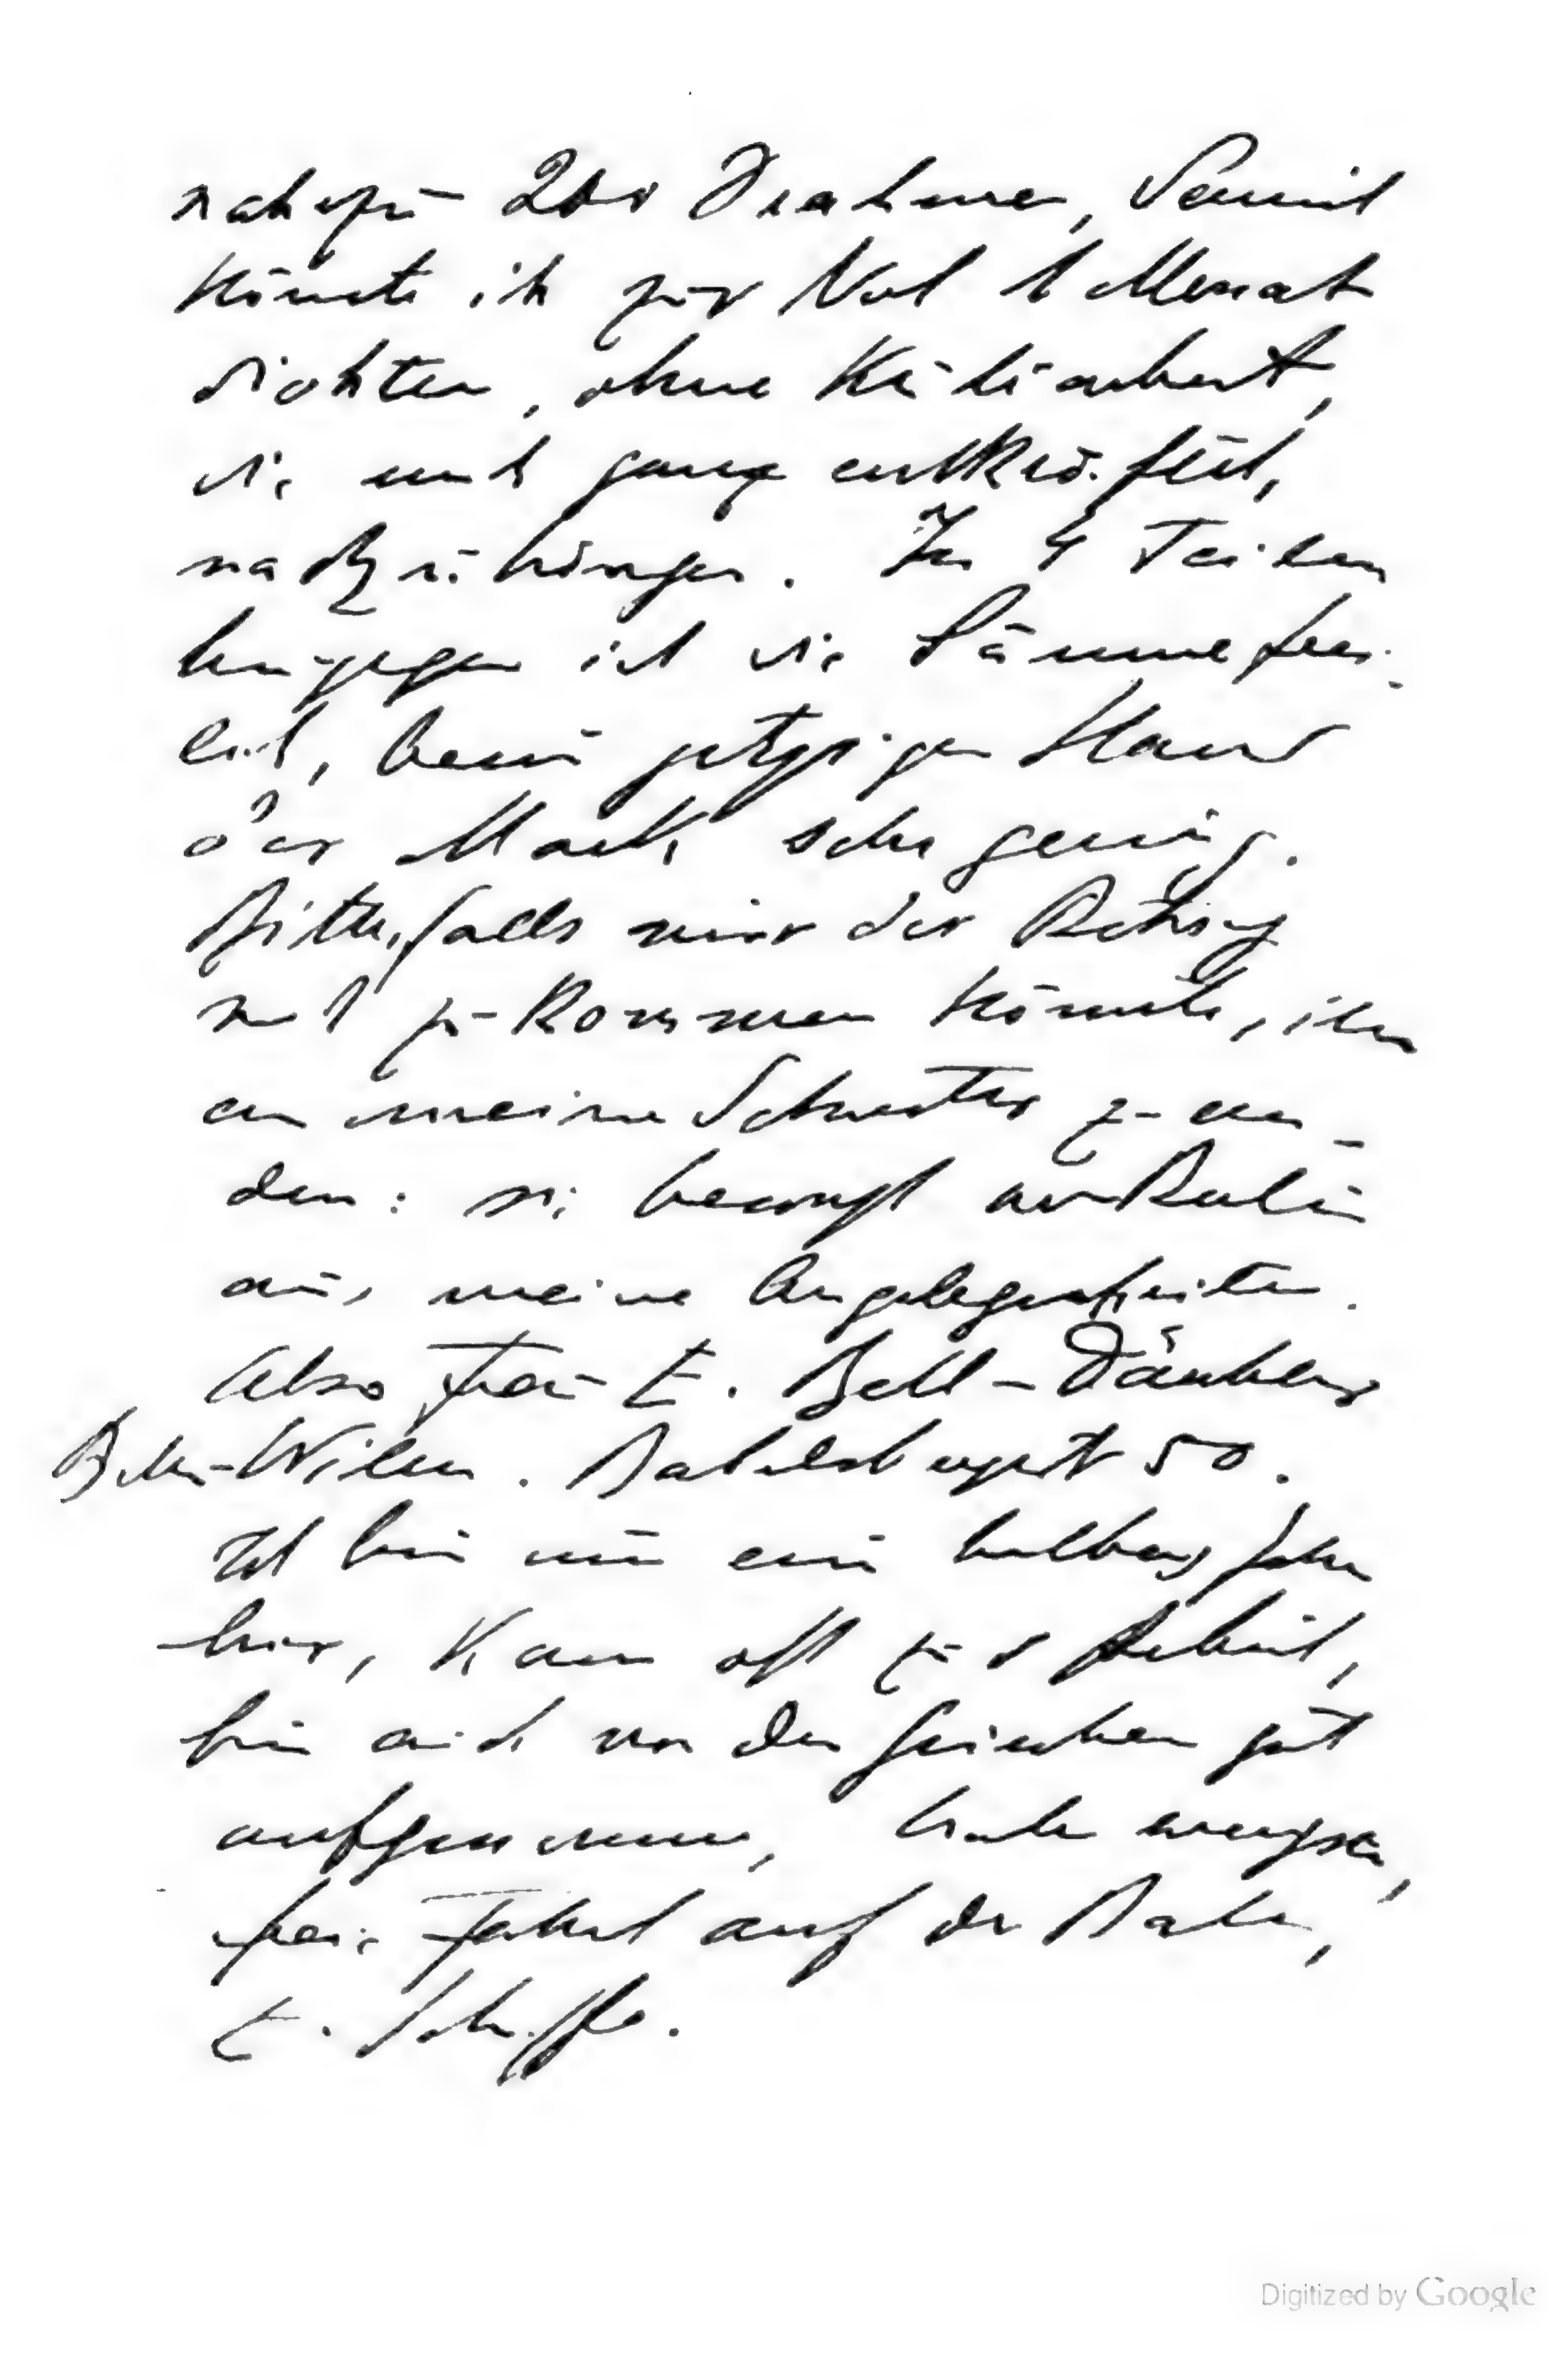 nahezu 200 Drahmen, damit
könnte ich zur Not 1 Monat
dichten, ohne Kuliarbeit,
die mich ganz entkräftet,
nachzubringen. In 4 Teilen
hingegen ist die Summe frei-
lich, beim jetzigen Stand
der Mark sehr gering.
Bitte, falls mir der Betrag
nicht zukommen könnte, ihn
an meine Schwester zu sen-
den: sie besorgt von Berlin
aus meine Angelegenheiten.
Also Frau E. Bell-Däubler
Berlin-Wilm. Babelsbergerst 50.
Ich bin nun ein halbes Jahr
hier, kam oft zur Arbeit,
bin auch von den Griechen gut
aufgenommen, habe
freie Fahrt auf der Bahn,
z. Schiffe.